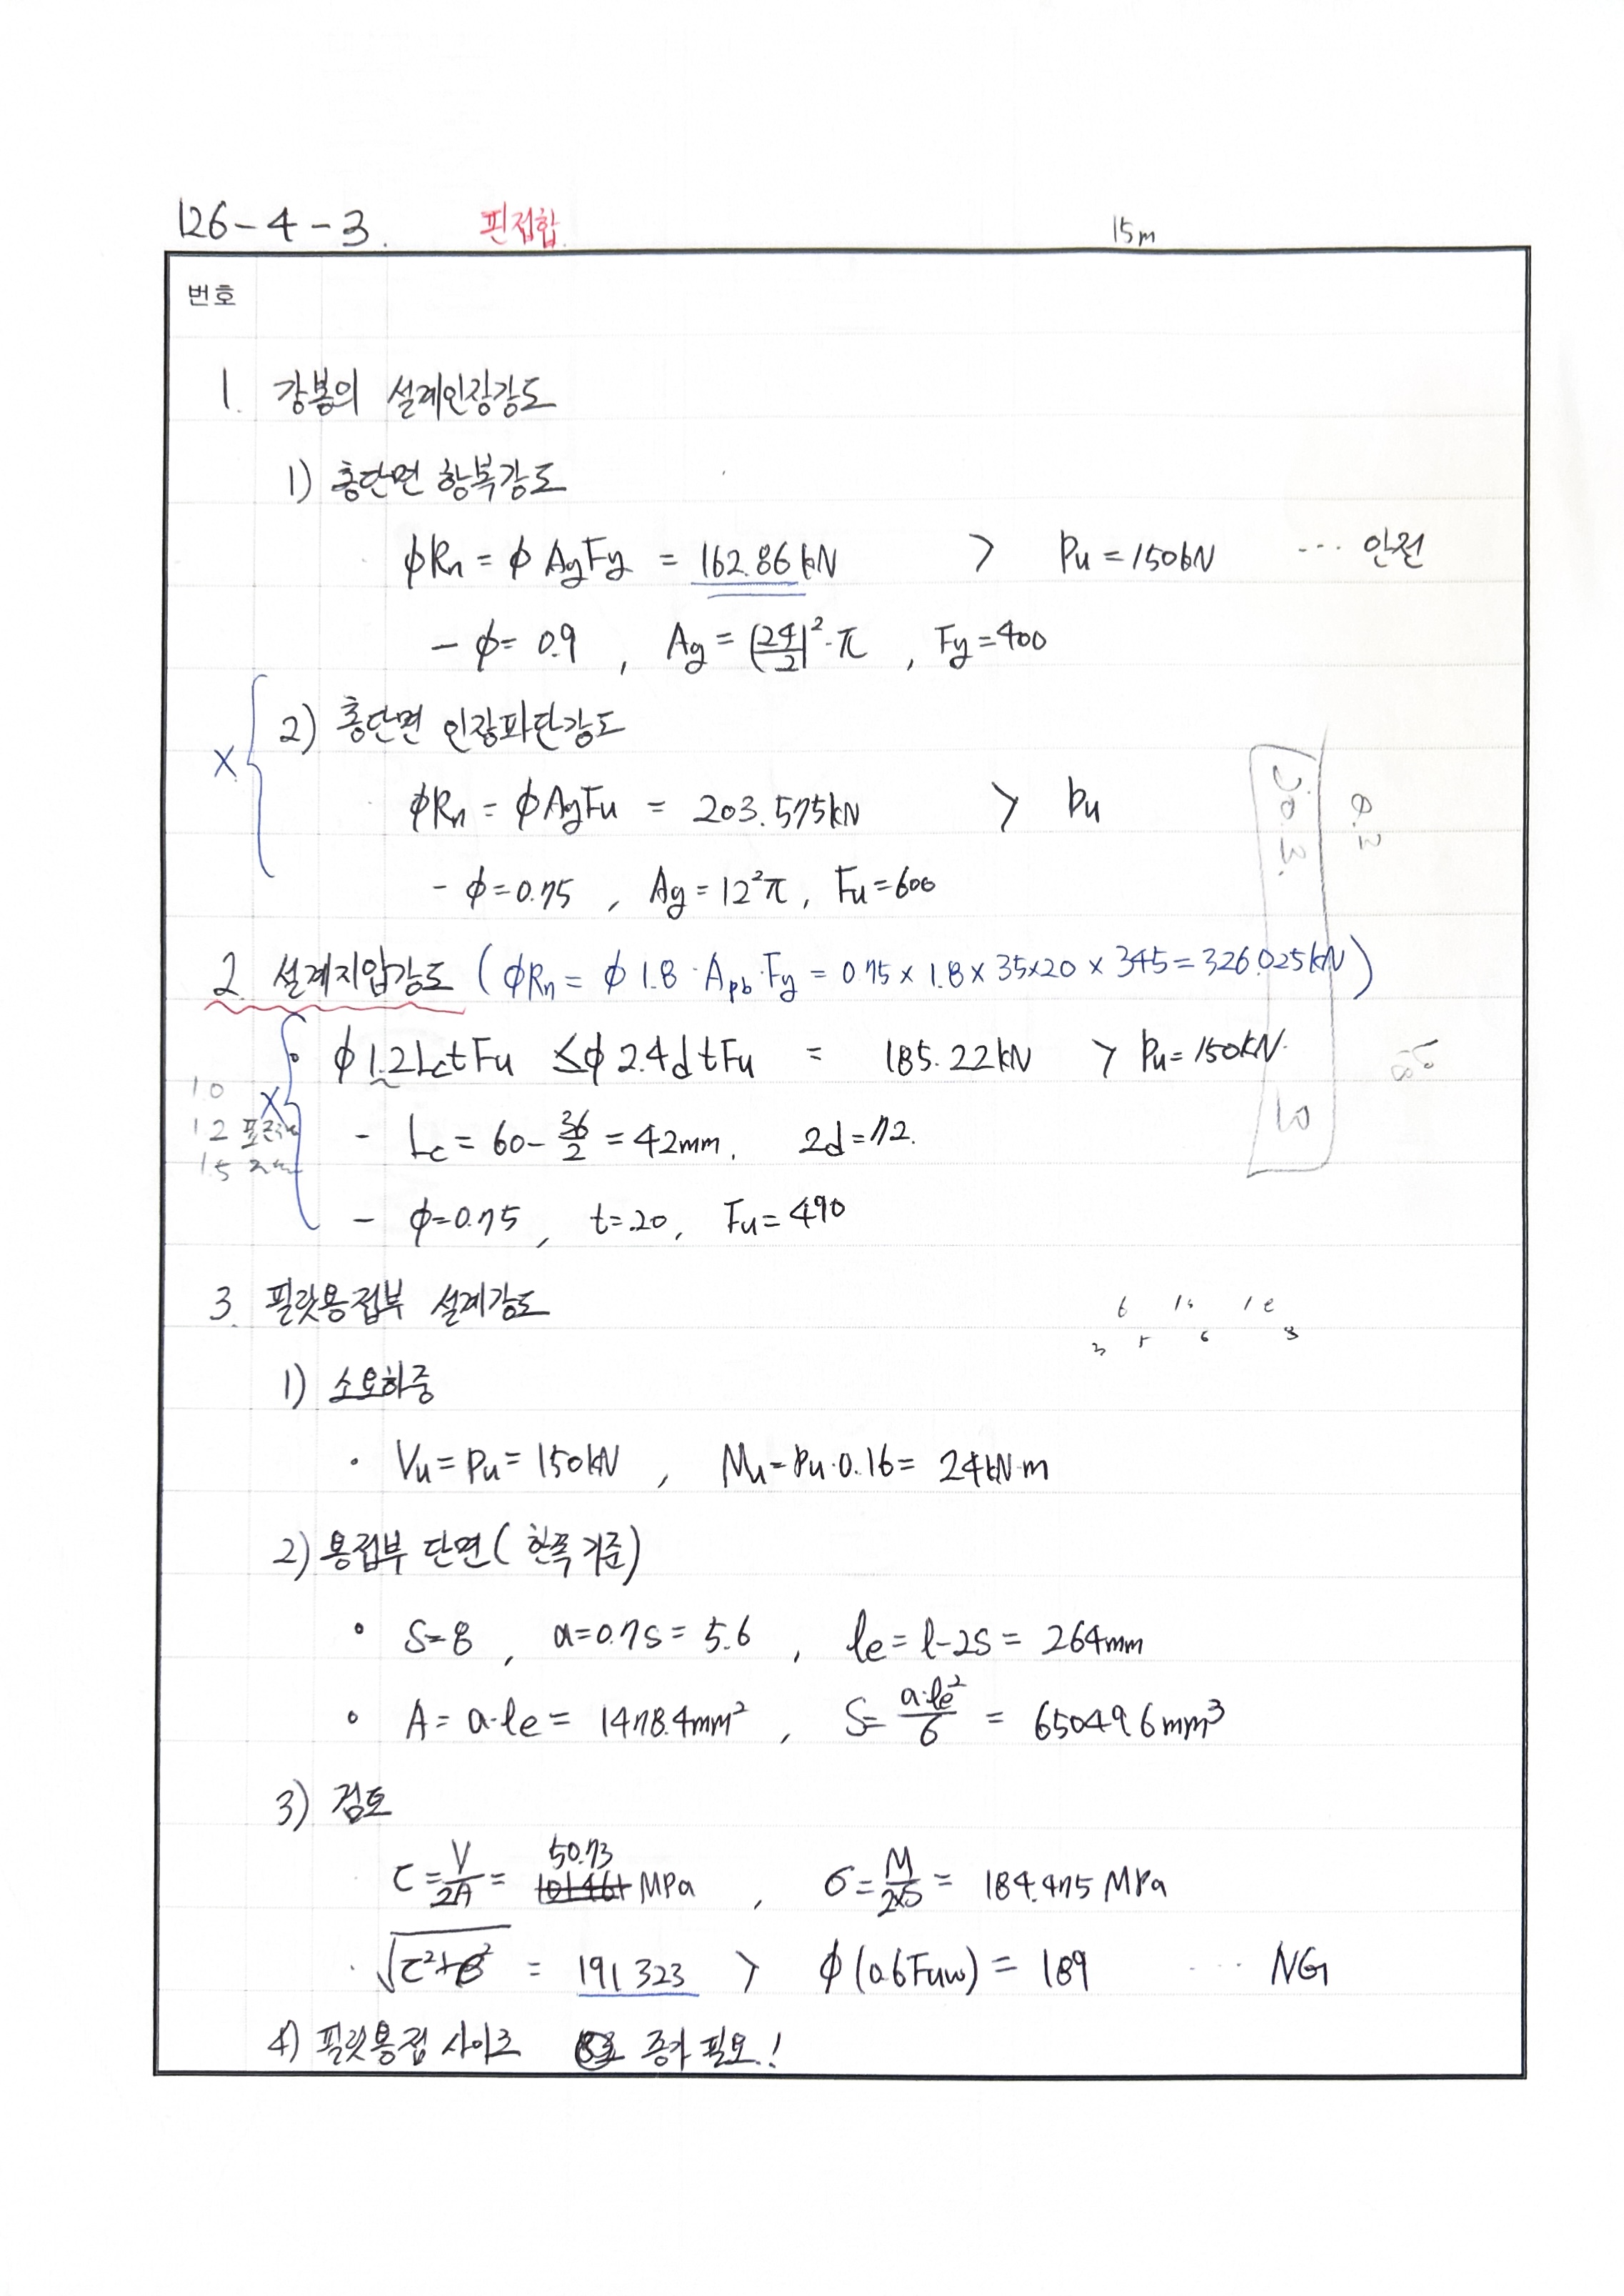 126-4-3. 핀접합. 15m
번호
1. 강봉의 설계인장강도
1) 총단면 항복강도
ϕRn = ϕ AgFy = 162.86kN > Pu = 150kN ... 안전
- ϕ= 0.9 , Ag = (24/2)²·π , Fy=400
X 2) 총단면 인장파단강도
ϕRn = ϕAgFu = 203.575kN > Pu
- ϕ=0.75 , Ag = 12²π , Fu=600
2. 설계지압강도 (ϕRn = ϕ 1.8 · Apb · Fy = 0.75 x 1.8 x 35x20 x 345 = 326.025kN)
X ϕ 1.2LctFu ≤ϕ 2.4dtFu = 185.22kN > Pu=150kN.
1.0
1.2
1.5
- Lc = 60- 36/2 = 42mm, 2d=72.
- ϕ=0.75 , t=20, Fu=490
3. 필릿용접부 설계강도
6
3 5 6 8
1) 소요하중
· Vu = Pu = 150kN , Mu=Pu·0.16= 24kN·m
2) 용접부 단면 (한쪽 기준)
• S=8 , a=0.7s = 5.6 , le= l-2S = 264mm
• A= a·le = 1478.4mm² , S= a·le²/6 = 65049.6mm³
3) 검토
τ = V/2A = 50.73 MPa , σ= M/2xS = 184.475 MPa
· √τ²+σ² = 191.323 > ϕ(0.6Fuw) = 189 ... NG
4) 필릿용접 사이즈 증가 필요!